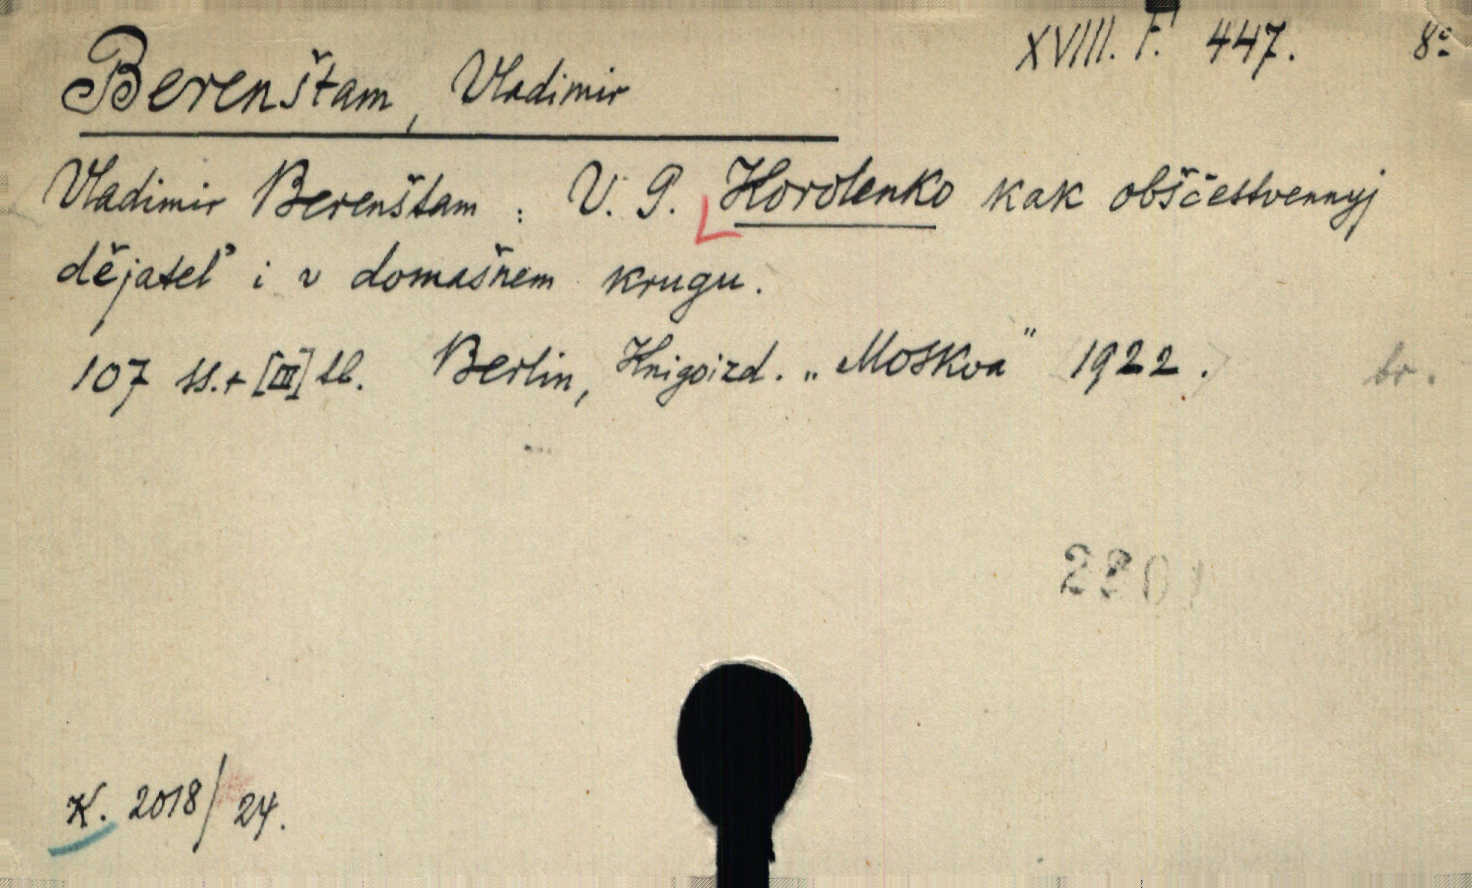 XVIII. F. 447. 8°
Berenštam, Vladimir
Vladimir Berenštam : V. G. Korolenko kak obščestvennyj
dějatel' i v domašnem krugu.
107 ss. + [III] sl. Berlin, Knigoizd. „Moskva" 1922. br.
2201
K. 2018/24.